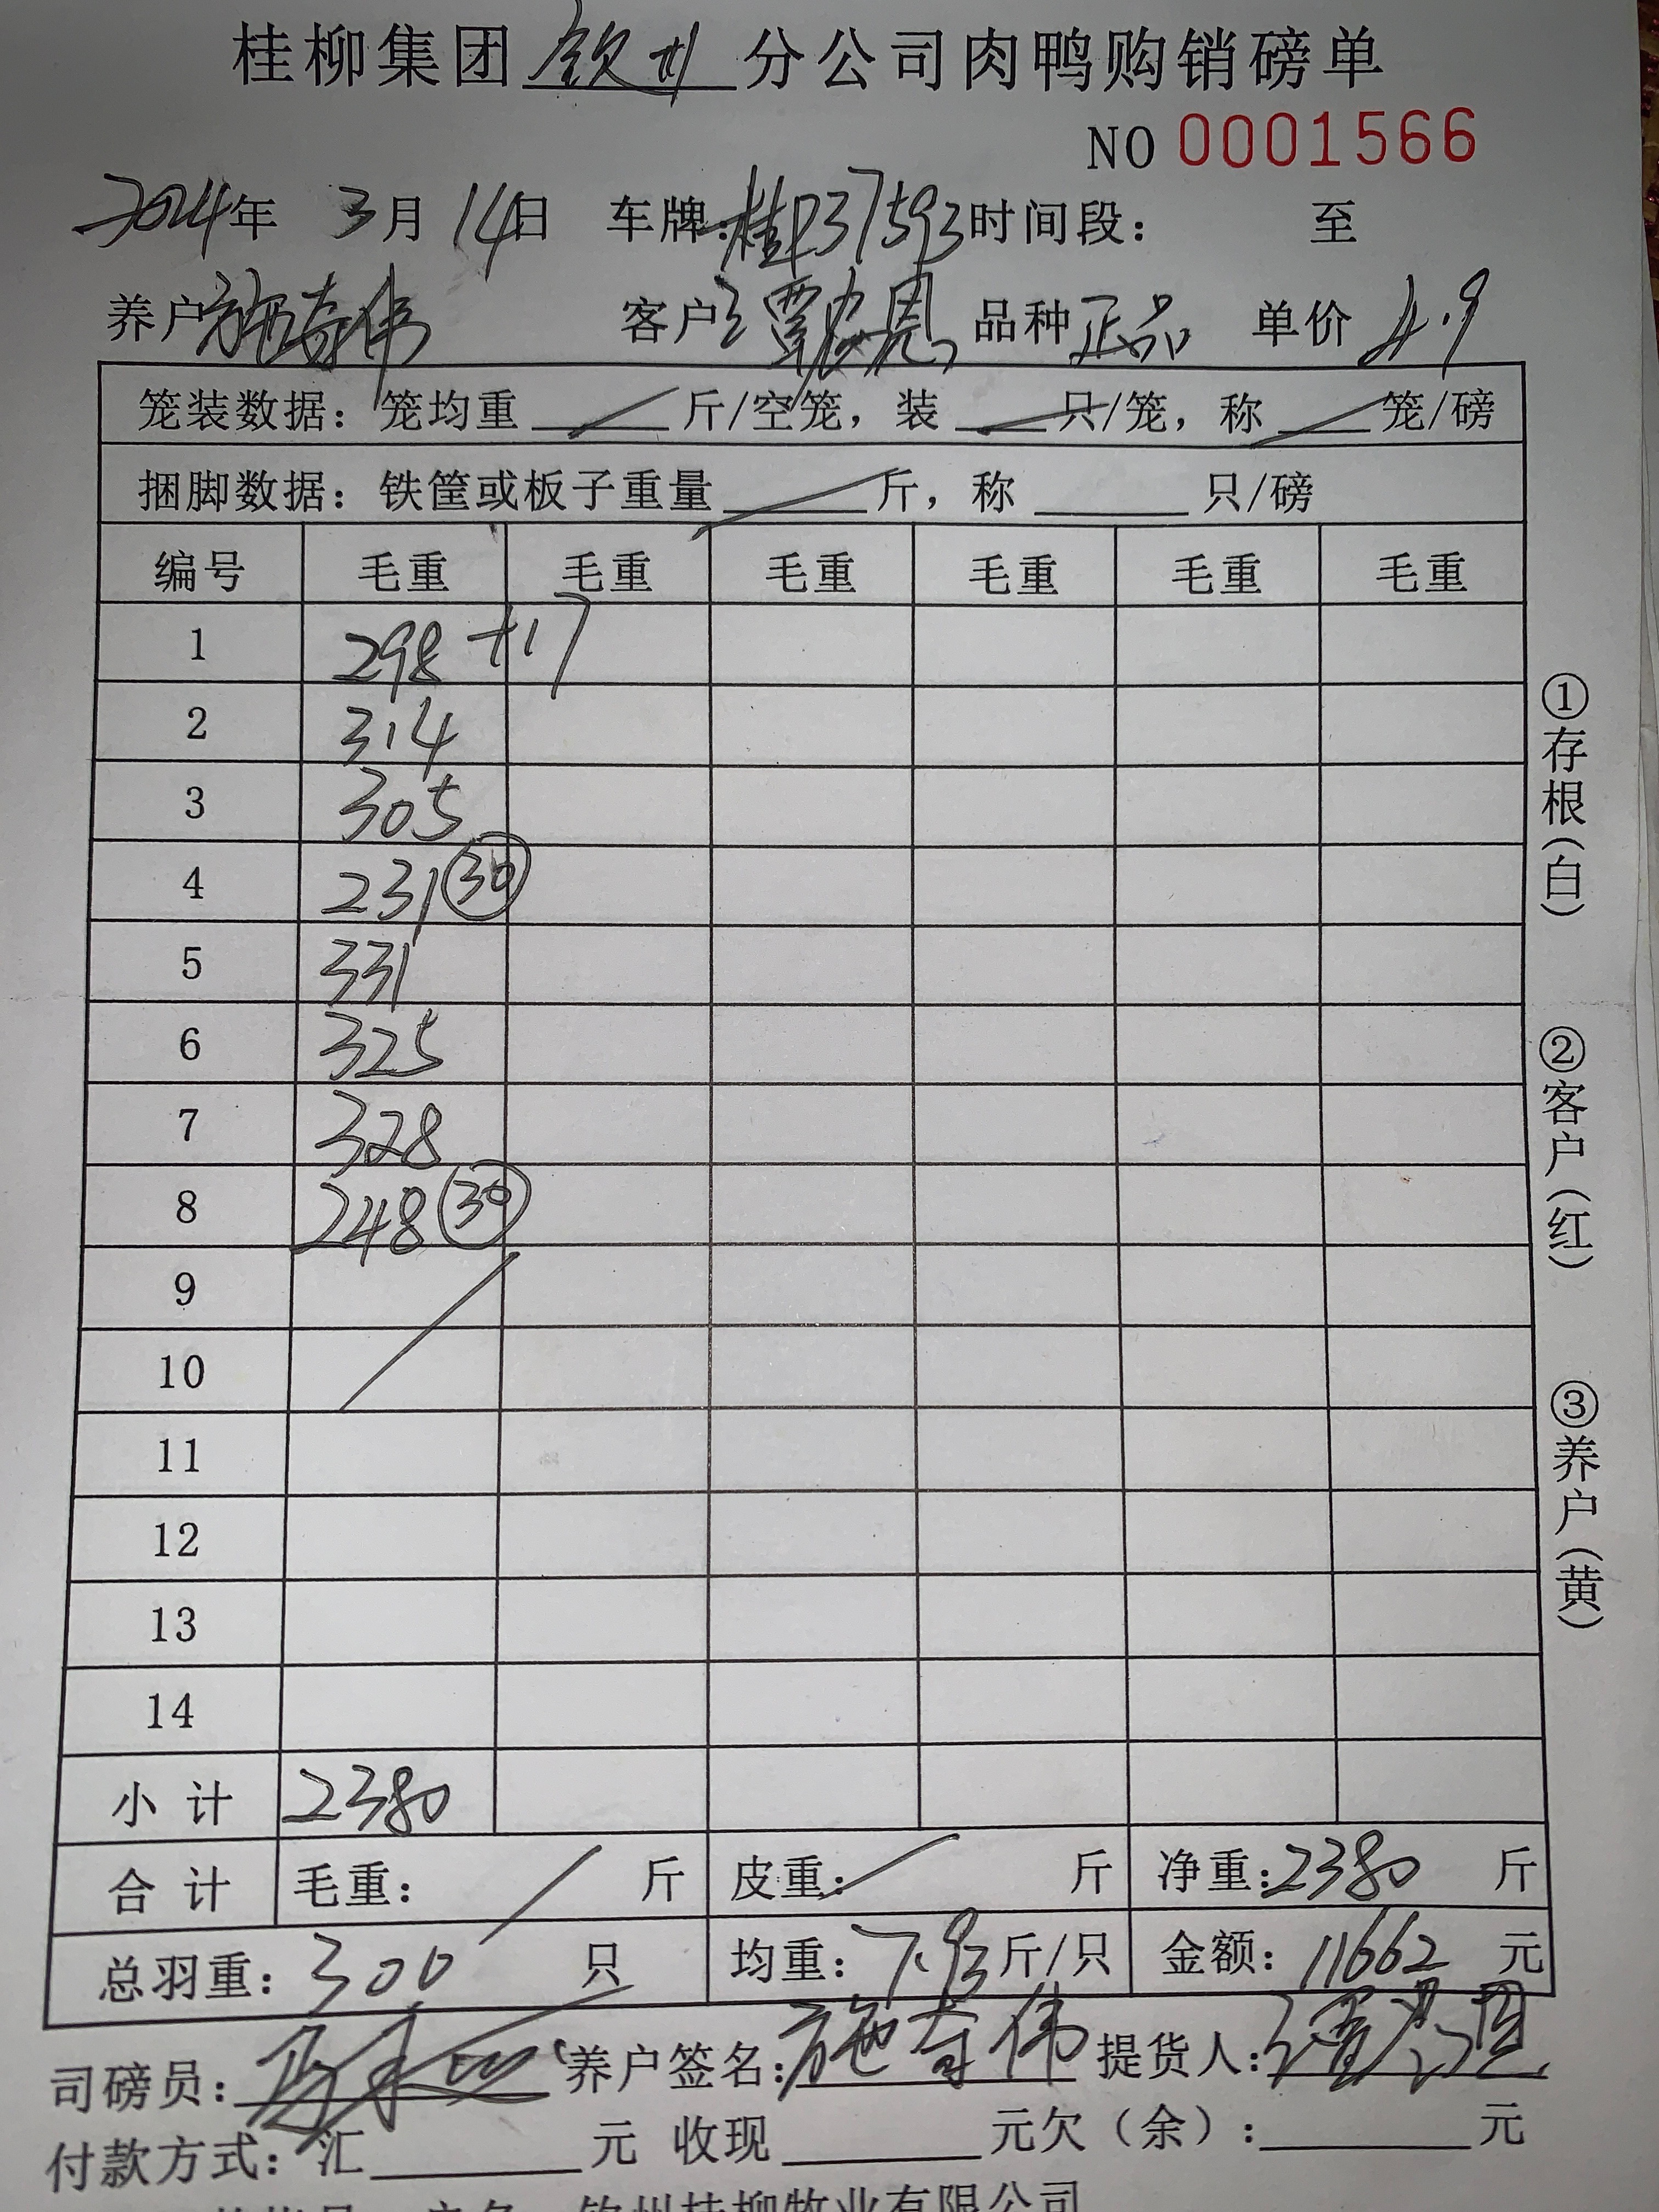 桂柳集团钦州分公司肉鸭购销磅单
NO 0001566
2024年 3月14日 车牌:桂P37593 时间段: 至
养户 施奇伟 客户: 覃 恩 品种 正品 单价 4.9
笼装数据: 笼均重 斤/空笼, 装 只/笼, 称 笼/磅
捆脚数据: 铁筐或板子重量 斤, 称 只/磅
编号 毛重 毛重 毛重 毛重 毛重 毛重
1 298 +17
2 314
3 305
4 231 30
5 331
6 325
7 328
8 248 30
9
10
11
12
13
14
小计 2380
合计 毛重: 斤 皮重: 斤 净重: 2380 斤
总羽重: 300 只 均重: 7.93 斤/只 金额: 11662 元
司磅员: 养户签名: 施奇伟 提货人:
付款方式: 汇 元 收现 元欠(余): 元
户名 钦州桂柳牧业有限公司
①存根(白)
②客户(红)
③养户(黄)